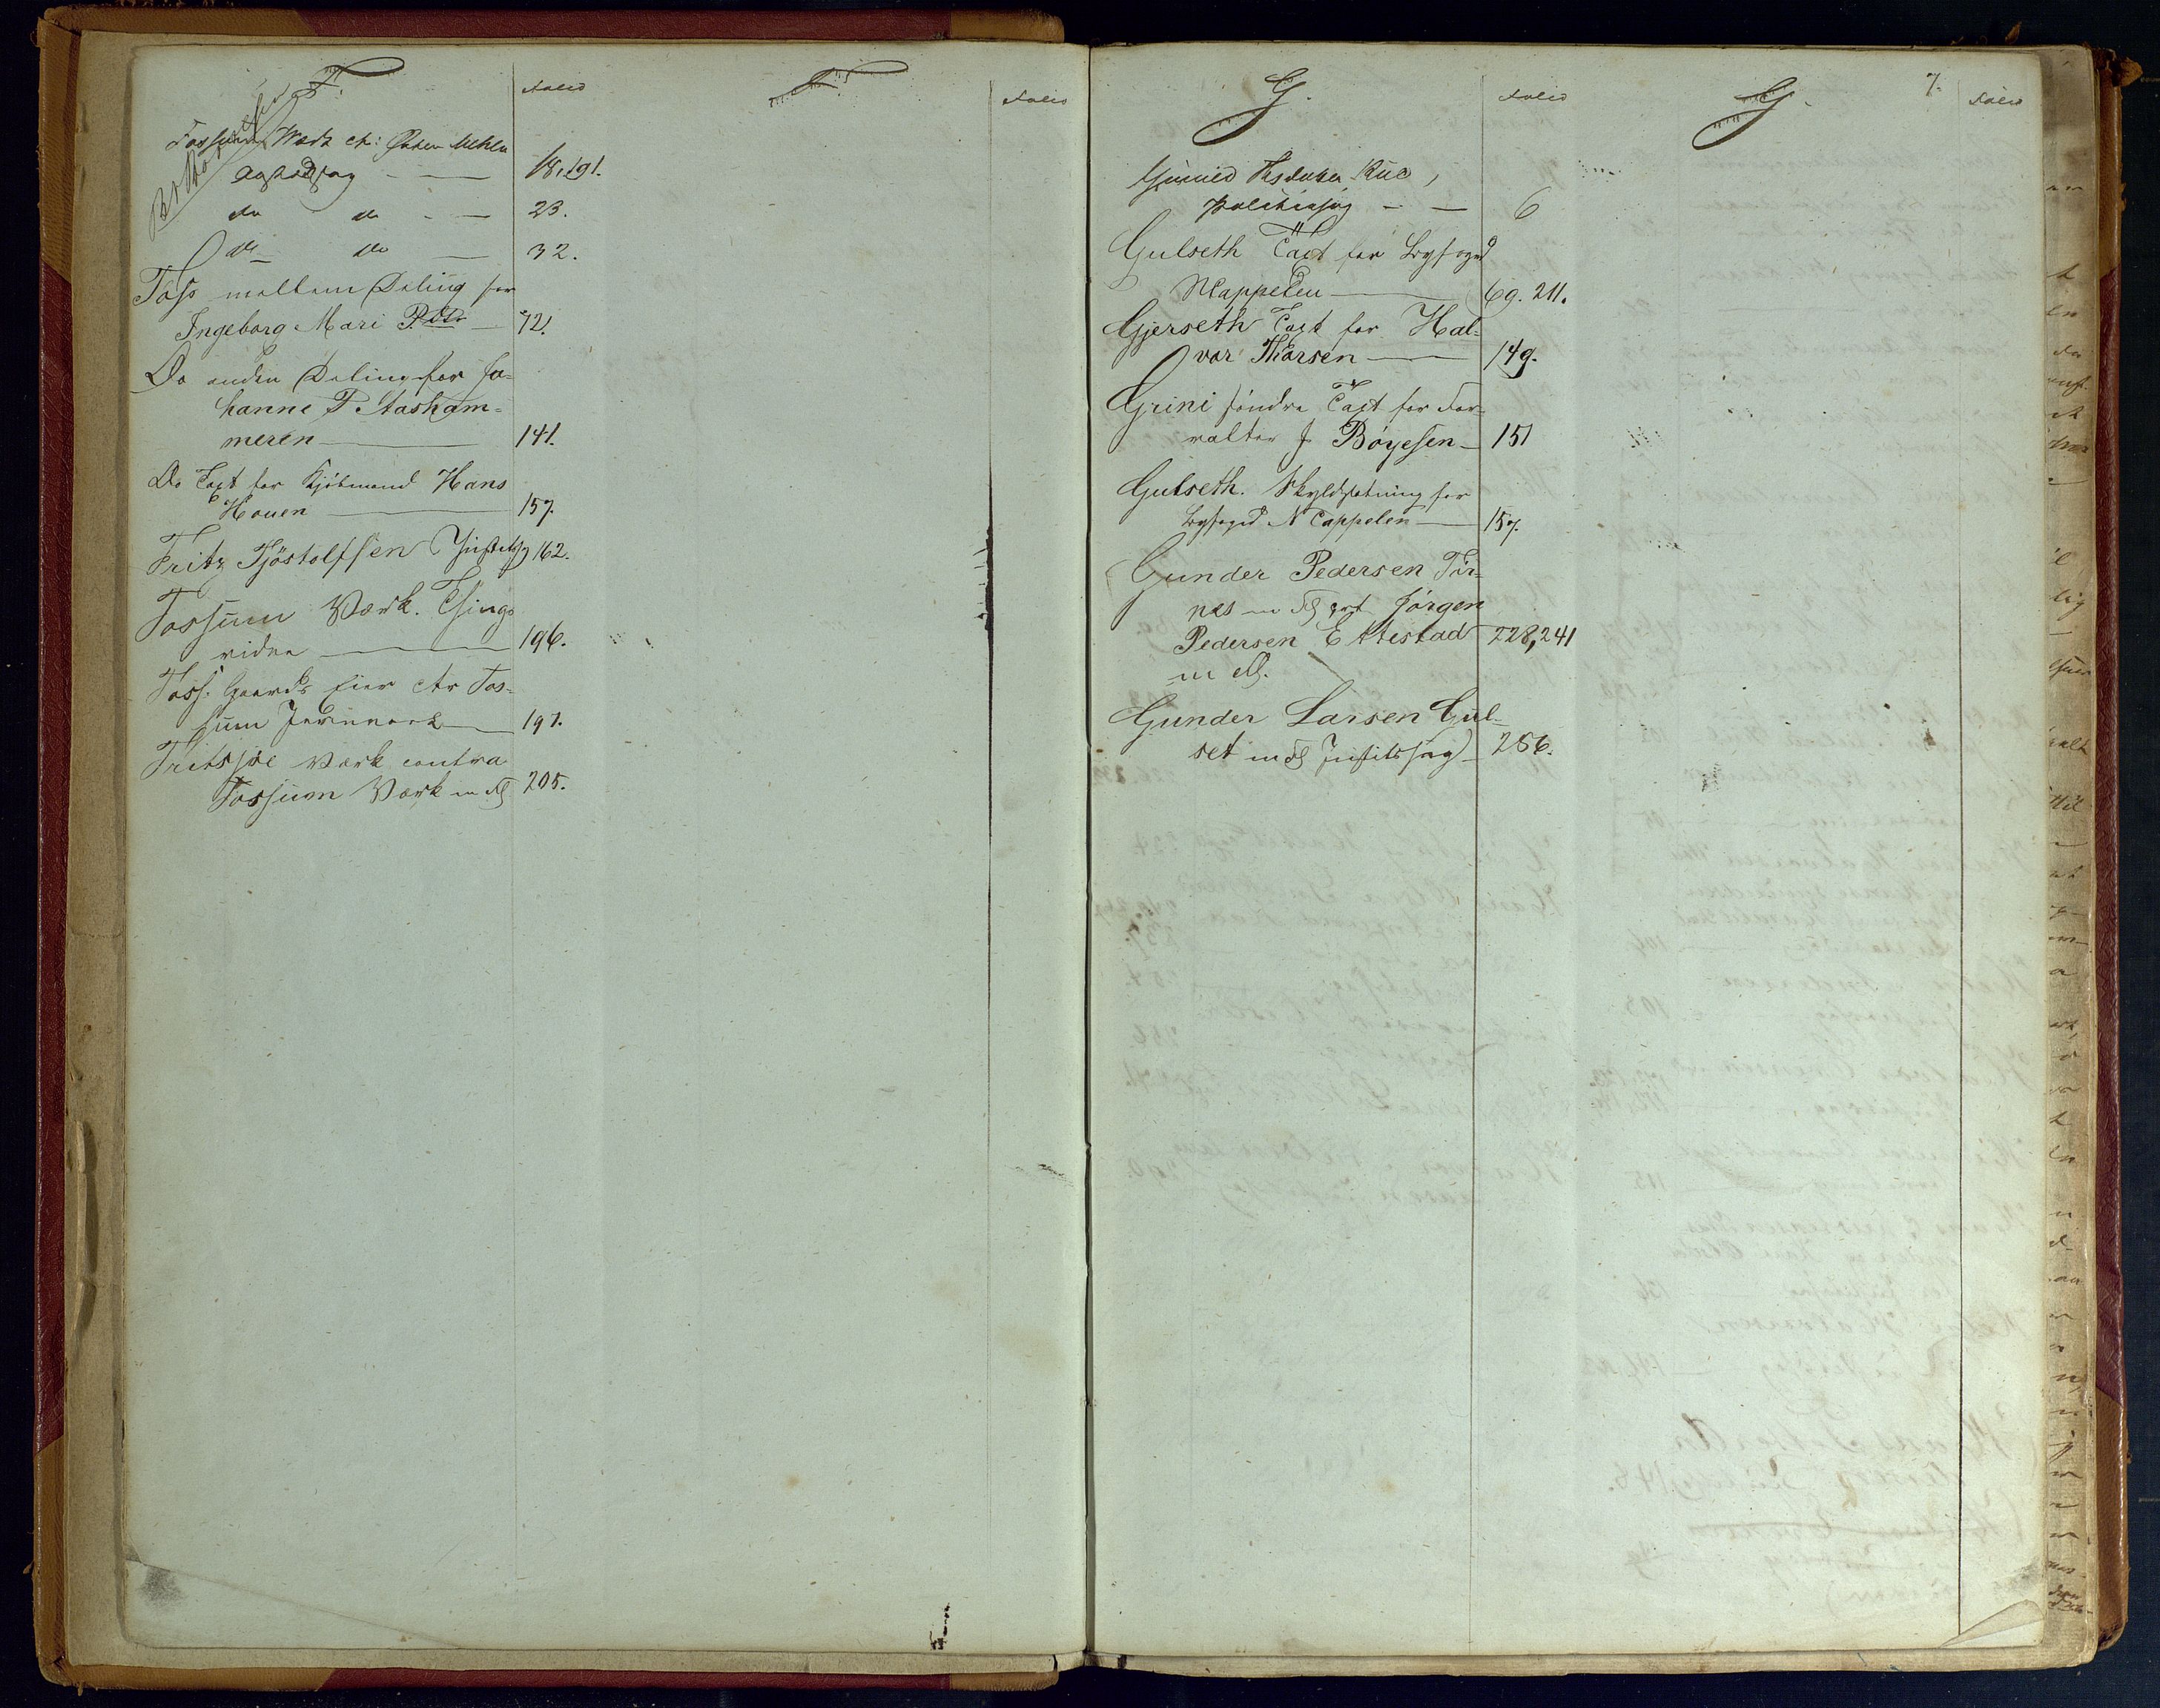 F.
Folio
F
Folio
Fossum Værk
18, 191.
do do - — 23.
do do — 32.
Foss mellem Deling for
Ingeborg Mari Pdtr — 121.
Do anden Deling for Jo-
hanne P. Aasham-
meren — 141.
Do Taxt for Kjöbmand Hans
Houen — 157.
Fritz Tjöstolfsen Justitssag 162.
Fossum Værk. Things
vidne — 196.
Foss. Gaards Eier ctr Fos-
sum Jernværk — 197.
Fritsöe Værk contra
Fossum Værk m fl 205.
G.
Folio
G.
7.
Folio
Politiesag - — 6
Gulseth Taxt for Byfoged
Cappelen — 69. 211.
Gjerseth Taxt for Hal-
vor Thorsen — 149.
Grini söndre Taxt for For-
valter J. Böyesen — 151
Gulseth. Skyldsætning for
Byfoged N Cappelen — 157.
Gunder Pedersen
m fl ctr Jörgen
Pedersen Ettestad 228,241
m fl.
Gunder Larsen Gul-
set m fl Justitssag — 256.